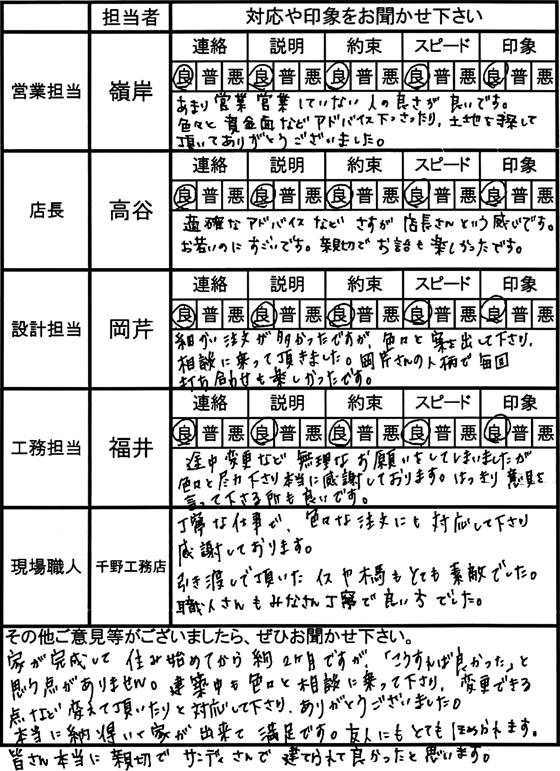 担当者 対応や印象をお聞かせ下さい
営業担当 嶺岸
連絡 説明 約束 スピード 印象
良 普 悪 良 普 悪 良 普 悪 良 普 悪 良 普 悪
あまり営業営業していない人の良さが良いです。
色々と資金面などアドバイス下さったり、土地を探して
頂いてありがとうございました。
店長 高谷
連絡 説明 約束 スピード 印象
良 普 悪 良 普 悪 良 普 悪 良 普 悪 良 普 悪
適確なアドバイスなど さすが店長さんという感じです。
お若いのにすごいです。親切でお話も楽しかったです。
設計担当 岡芹
連絡 説明 約束 スピード 印象
良 普 悪 良 普 悪 良 普 悪 良 普 悪 良 普 悪
細かい注文が多かったですが、色々と案を出して下さり、
相談に乗って頂きました。岡芹さんの人柄で毎回
打ち合わせも楽しかったです。
工務担当 福井
連絡 説明 約束 スピード 印象
良 普 悪 良 普 悪 良 普 悪 良 普 悪 良 普 悪
途中変更など無理なお願いをしてしまいましたが
色々と尽力下さり本当に感謝しております。はっきり意見を
言って下さる所も良いです。
現場職人 千野工務店
丁寧な仕事で、色々な注文にも対応して下さり
感謝しております。
引き渡しで頂いたイスや木馬もとても素敵でした。
職人さんもみなさん丁寧で良い方でした。
その他ご意見等がございましたら、ぜひお聞かせ下さい。
家が完成して住み始めてから約2ヶ月ですが、「こうすれば良かった」と
思う点がありません。建築中も色々と相談に乗って下さり、変更できる
点など変えて頂いたりと対応して下さり、ありがとうございました。
本当に納得いく家が出来て満足です。友人にもとてもほめられます。
皆さん本当に親切でサンディさんで建てられて良かったと思います。